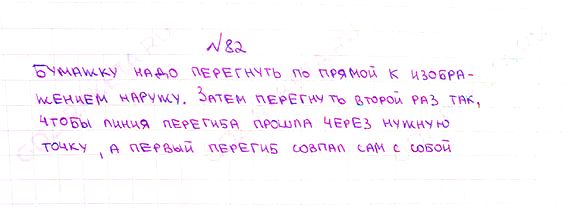 №82
БУМАЖКУ НАДО ПЕРЕГНУТЬ ПО ПРЯМОЙ К ИЗОБРА-
ЖЕНИЕМ НАРУЖУ. ЗАТЕМ ПЕРЕГНУТЬ ВТОРОЙ РАЗ ТАК,
ЧТОБЫ ЛИНИЯ ПЕРЕГИБА ПРОШЛА ЧЕРЕЗ НУЖНУЮ
ТОЧКУ, А ПЕРВЫЙ ПЕРЕГИБ СОВПАЛ САМ С СОБОЙ